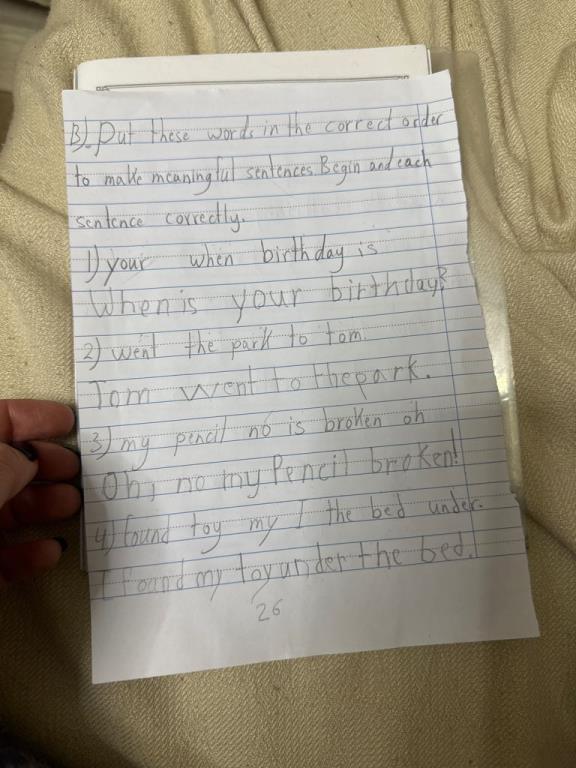 B). Put these words in the correct order
to make meaningful sentences. Begin and each
sentence correctly.
1) your when birthday is
When is your birthday?
2) went the park to tom.
Tom went to the park.
3) my pencil no is broken oh
Oh, no my Pencil broken!
4) found toy my I the bed under.
I found my toy under the bed.
26